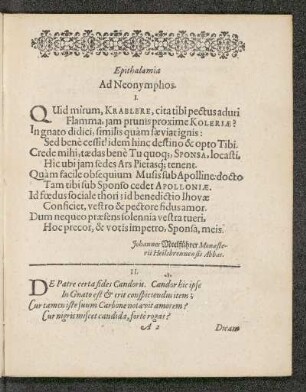 Epithalamia
Ad Neonymphos.
I.
QUid mirum, KRAELERE, cita tibi pectus aduri
Flamma, jam prunis proxime KOLERIÆ?
In gnato didici, similis quàm sæviat ignis:
Sed benè cessit! idem hinc destino & opto Tibi.
Crede mihi, tædas benè Tu quoq;, SPONSA, locasti,
Hic ubi jam sedes Ars Pietasq; tenent.
Quàm facile obsequium Musis sub Apolline docto
Tam tibi sub Sponso cedet APOLLONIÆ.
Id fœdus sociale thori; id benedictio Ihovæ
Conficiet, vestro & pectore fidus amor.
Dum nequeo præsens solennia vestra tueri,
Hoc precor, & votis impetro, Sponsa, meis.
Johannes Mehlführer Monaste-
rii Heilsbronnensis Abbas.
II.
DE Patre certa fides Candoris. Candor hic ipse
In Gnato est & erit conspiciendus item;
Cur tamen iste suum Carbone notavit amorem?
Cur nigris miscet candida, fortè rogat?
A 2
Dicam